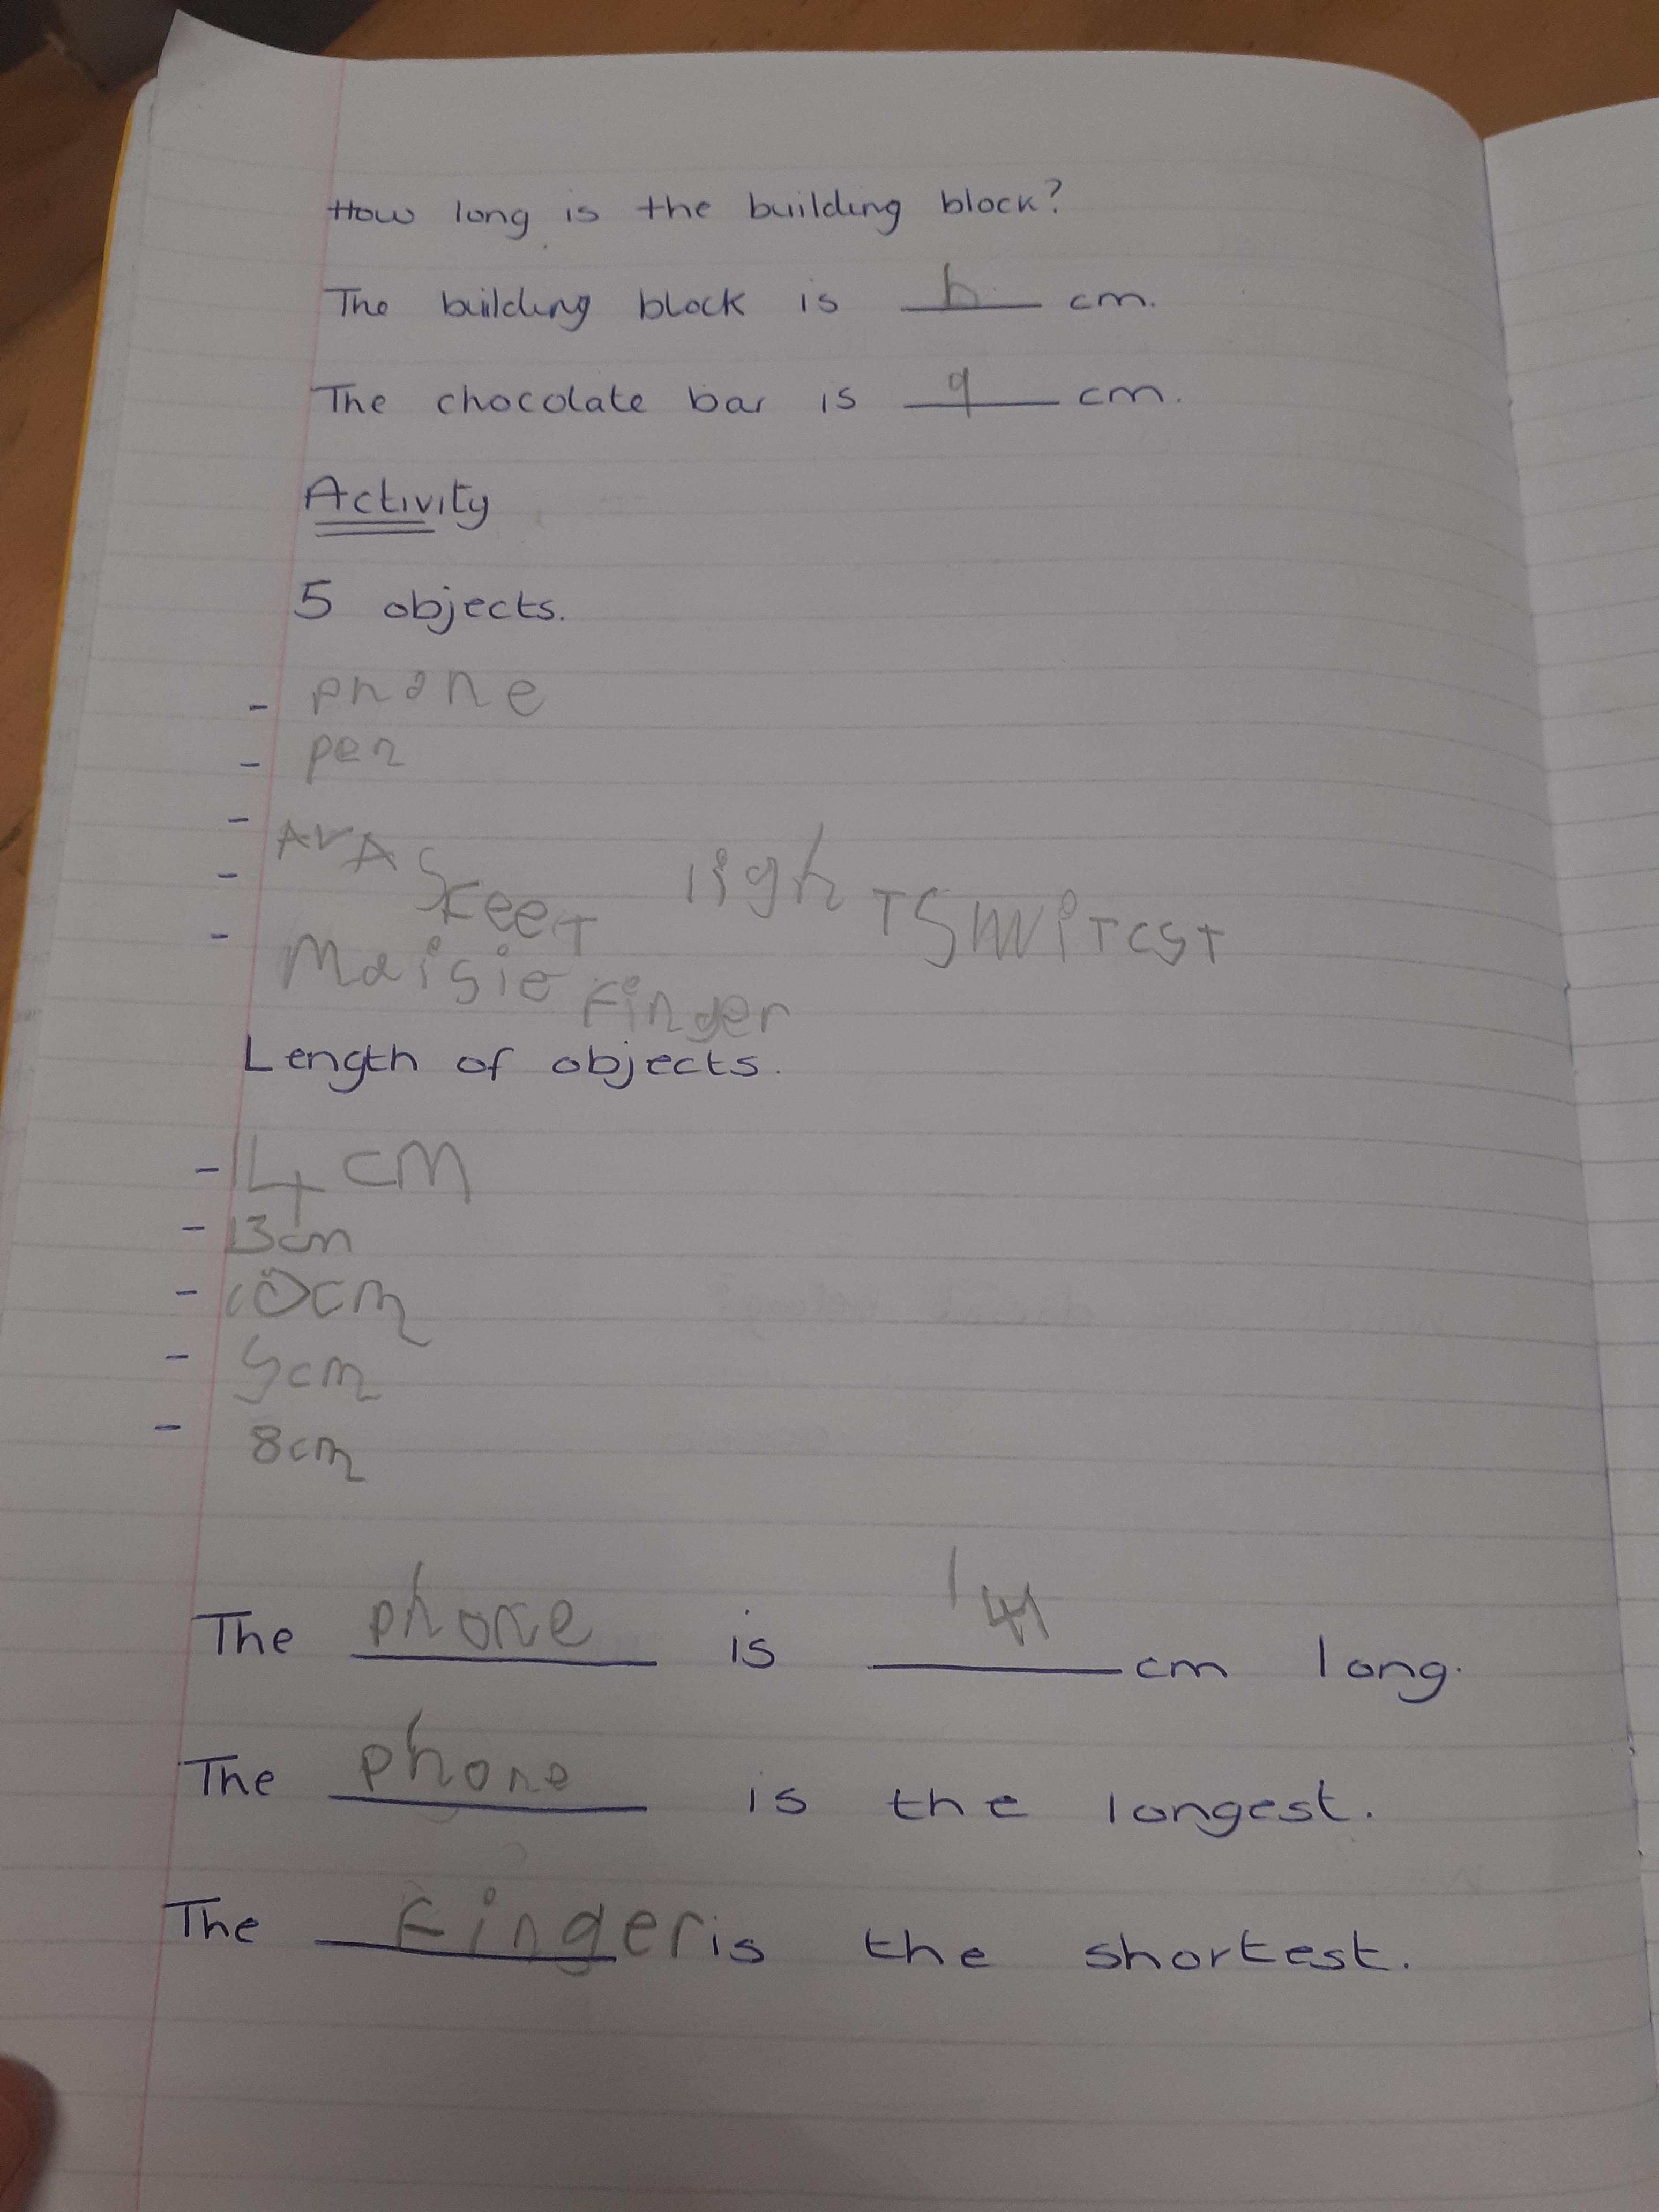 How long is the building block?
The building block is h cm.
The chocolate bar is 9 cm.
Activity
5 objects.
- phone
- pen
- AVA Skeet
- lighTSWiTCST
- Maisie Finger
Length of objects.
- 14 cm
- 13cm
- 10cm
- 9cm
- 8cm
The phone is 14 cm long.
The phone is the longest.
The Finger is the shortest.